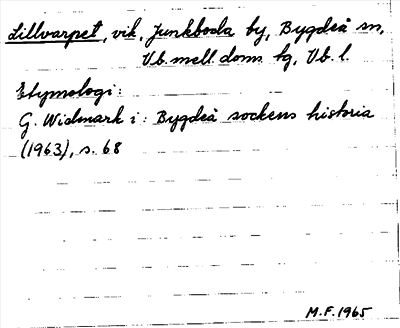 Lillvarpet, vik, Junkboda by, Bygdeå sn,
Vb. mell. doms. tg, Vb. l.
Etymologi:
G. Widmark i: Bygdeå sockens historia
(1963), s. 68
M.F. 1965